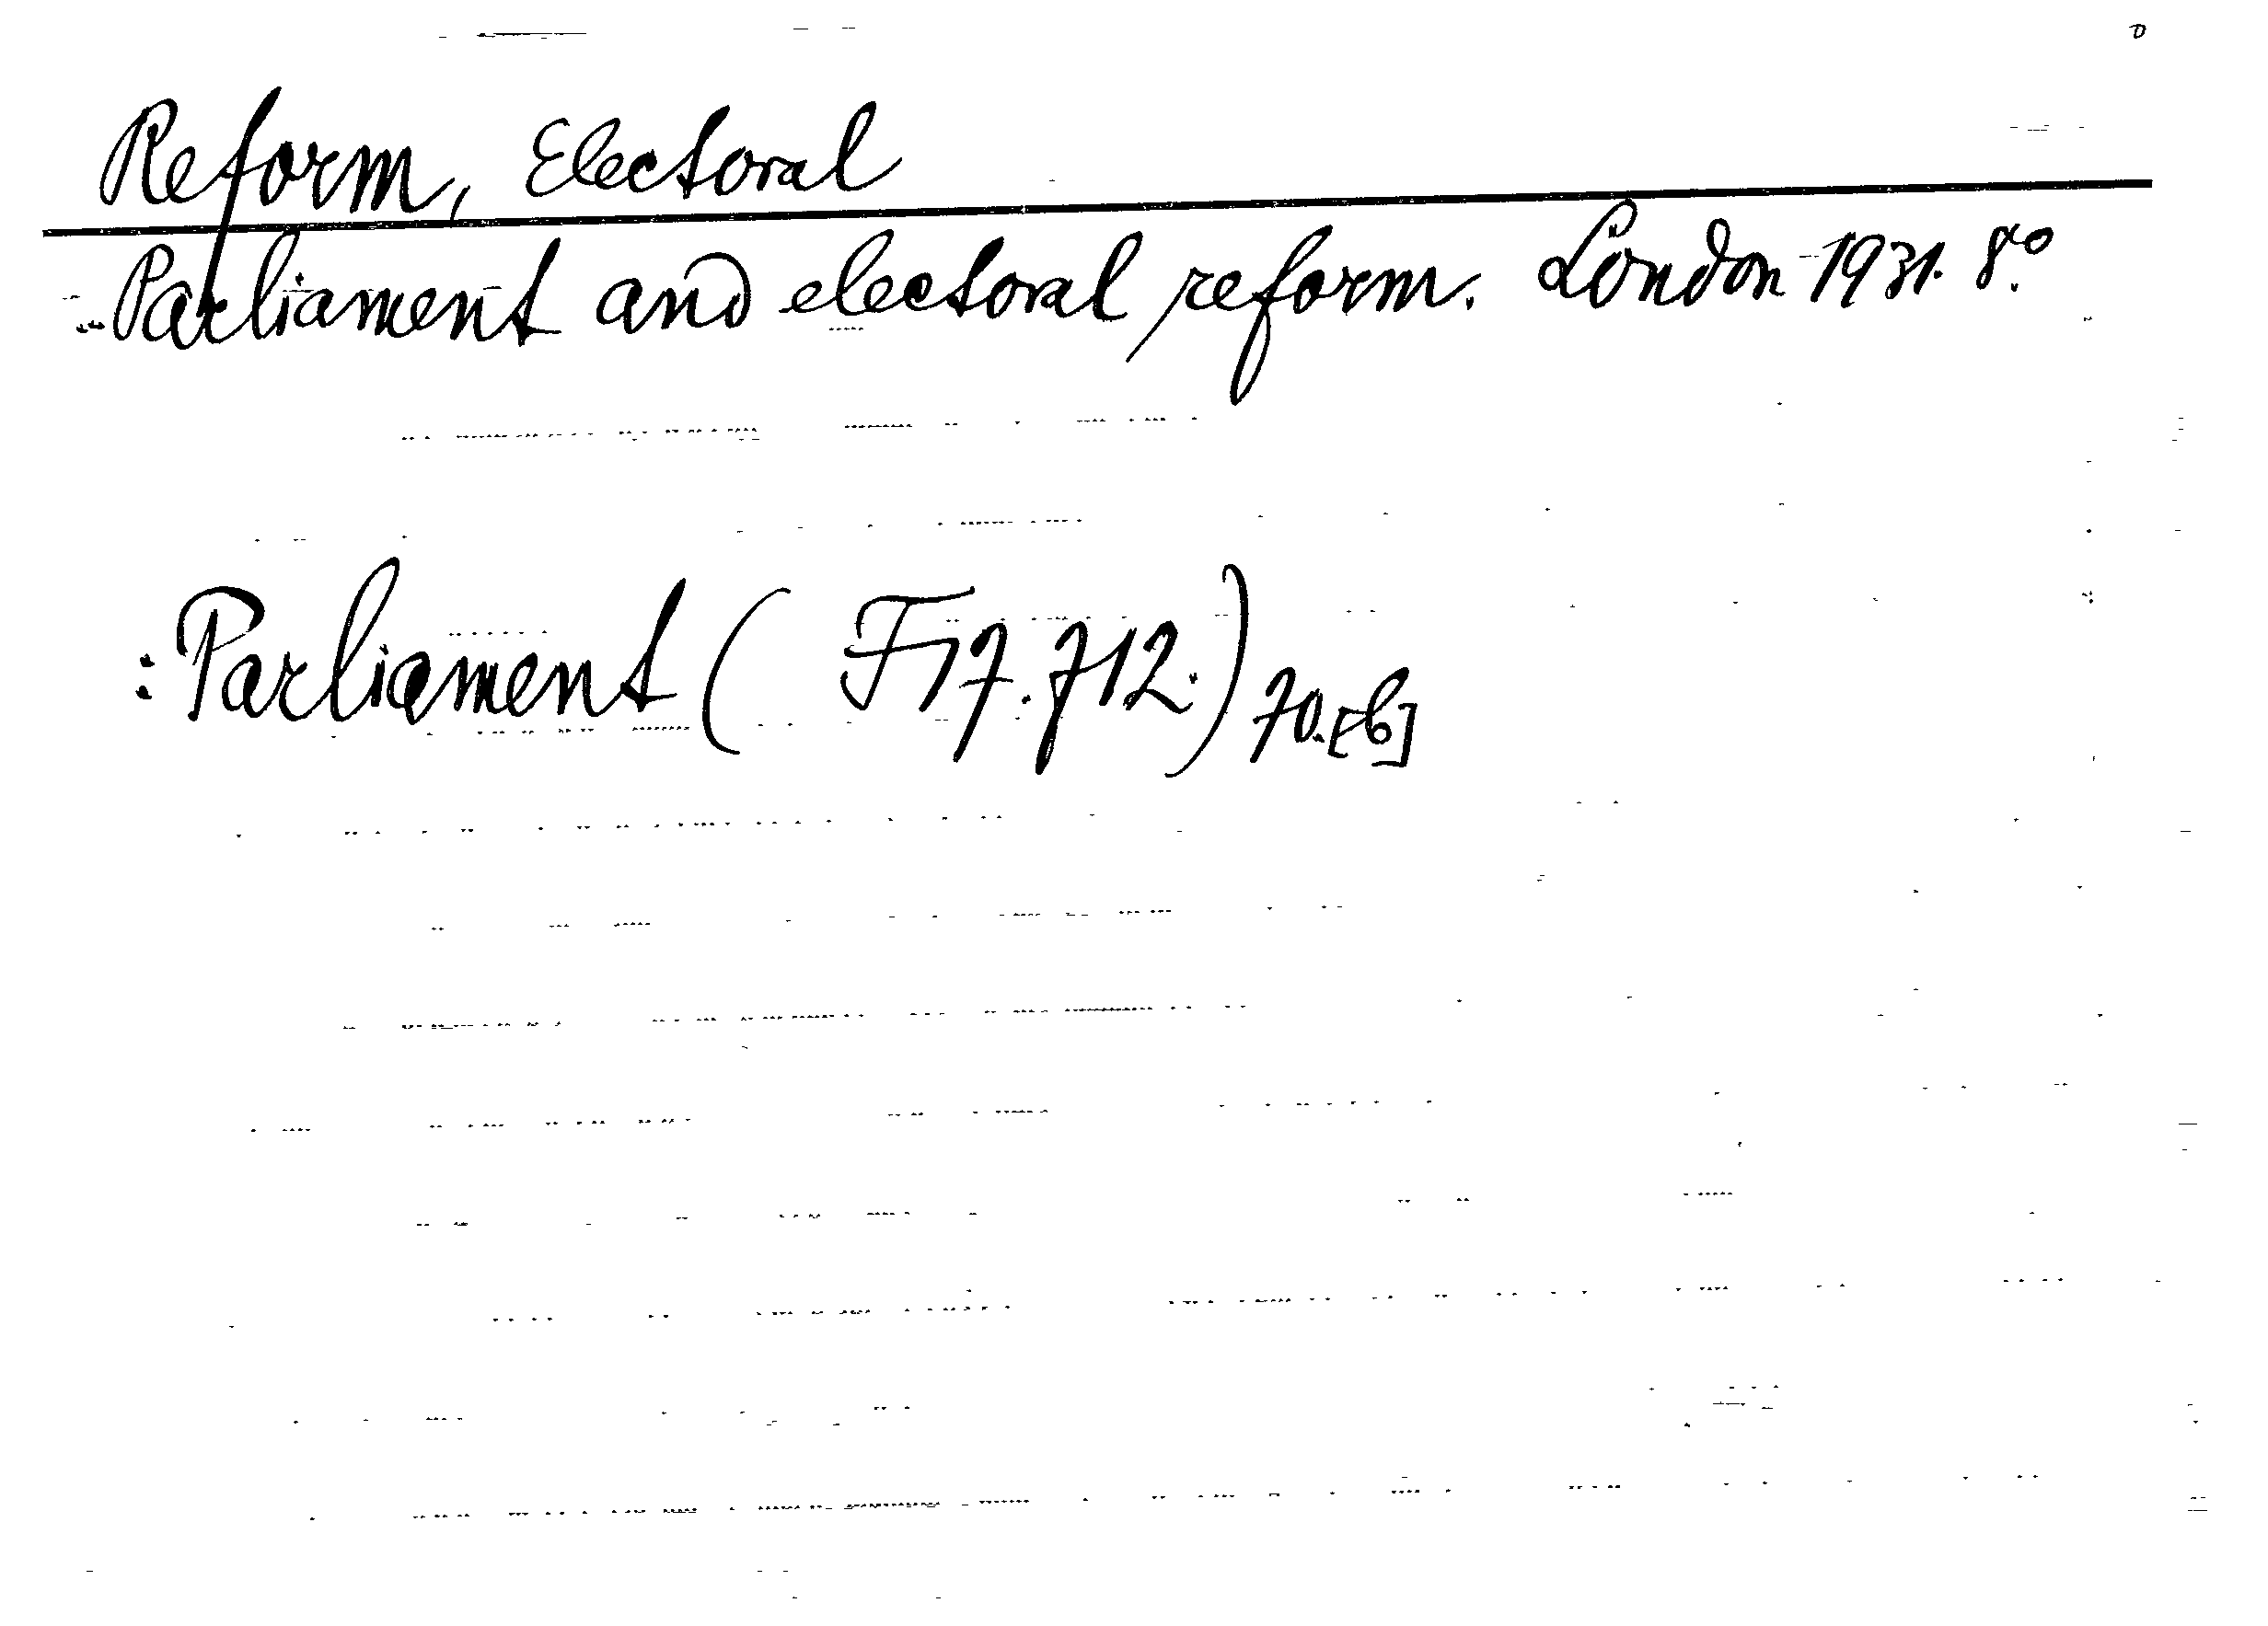 Reform, Electoral
Parliament and electoral reform. London 1931. 8.º
:Parliament ( F17.712.) 70.[b]